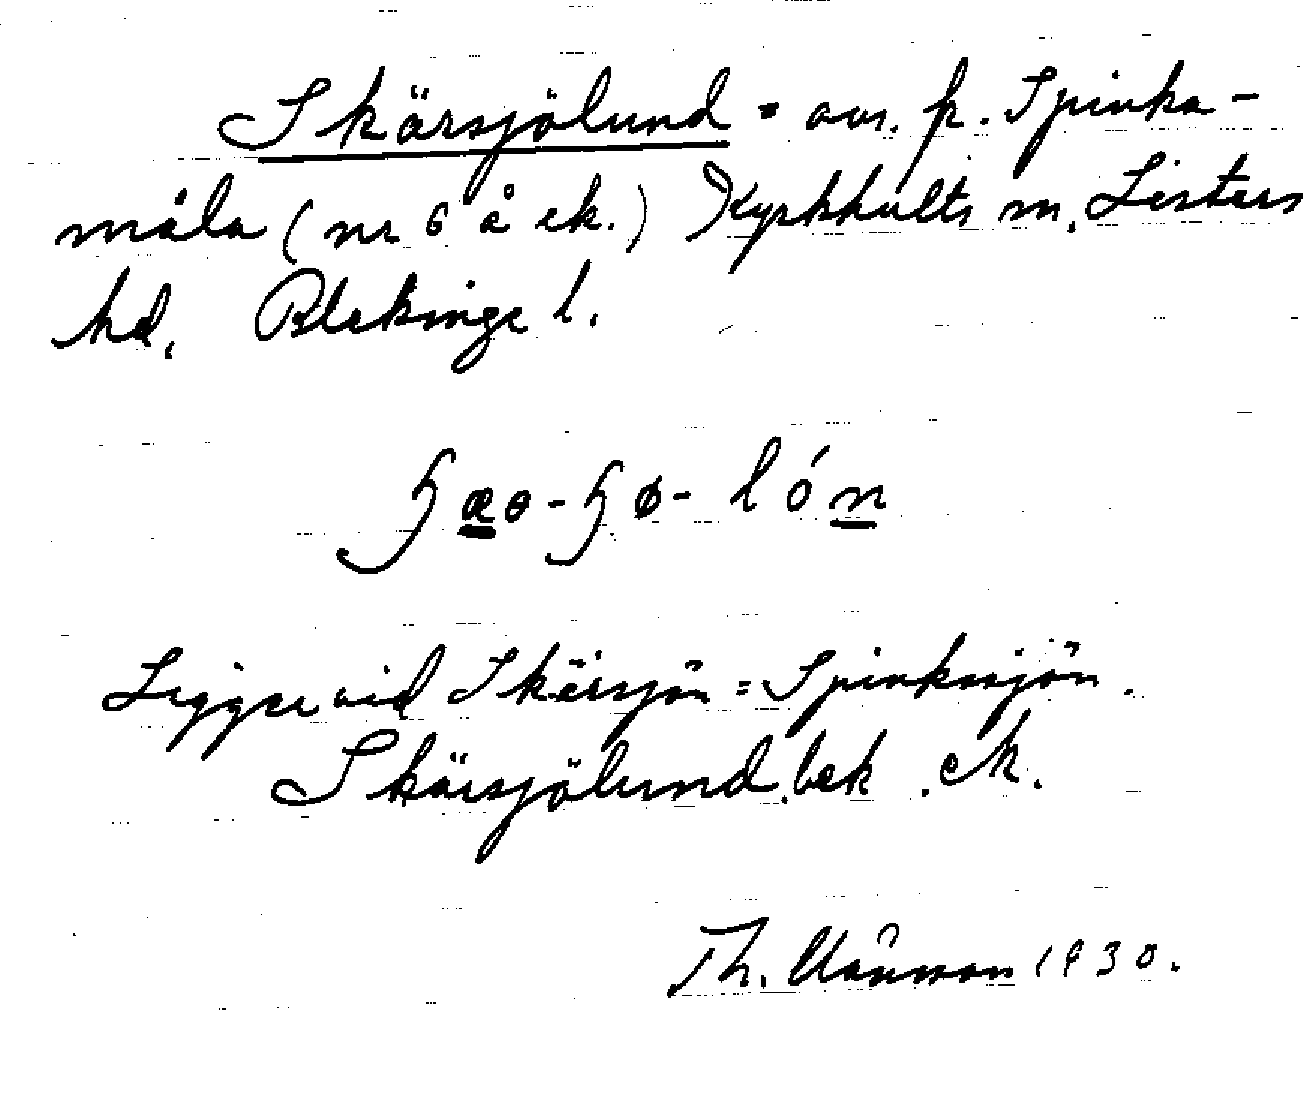 Skärsjölund = avs. fr. Spinka-
måla (nr 6 å ek.) Kyrkhults sn, Listers
hd, Blekinge l.
ɧæɵ-ɧø-lón
Ligger vid Skärsjön = Spinkasjön.
Skärsjölund bek. ek.
Th. 1930.